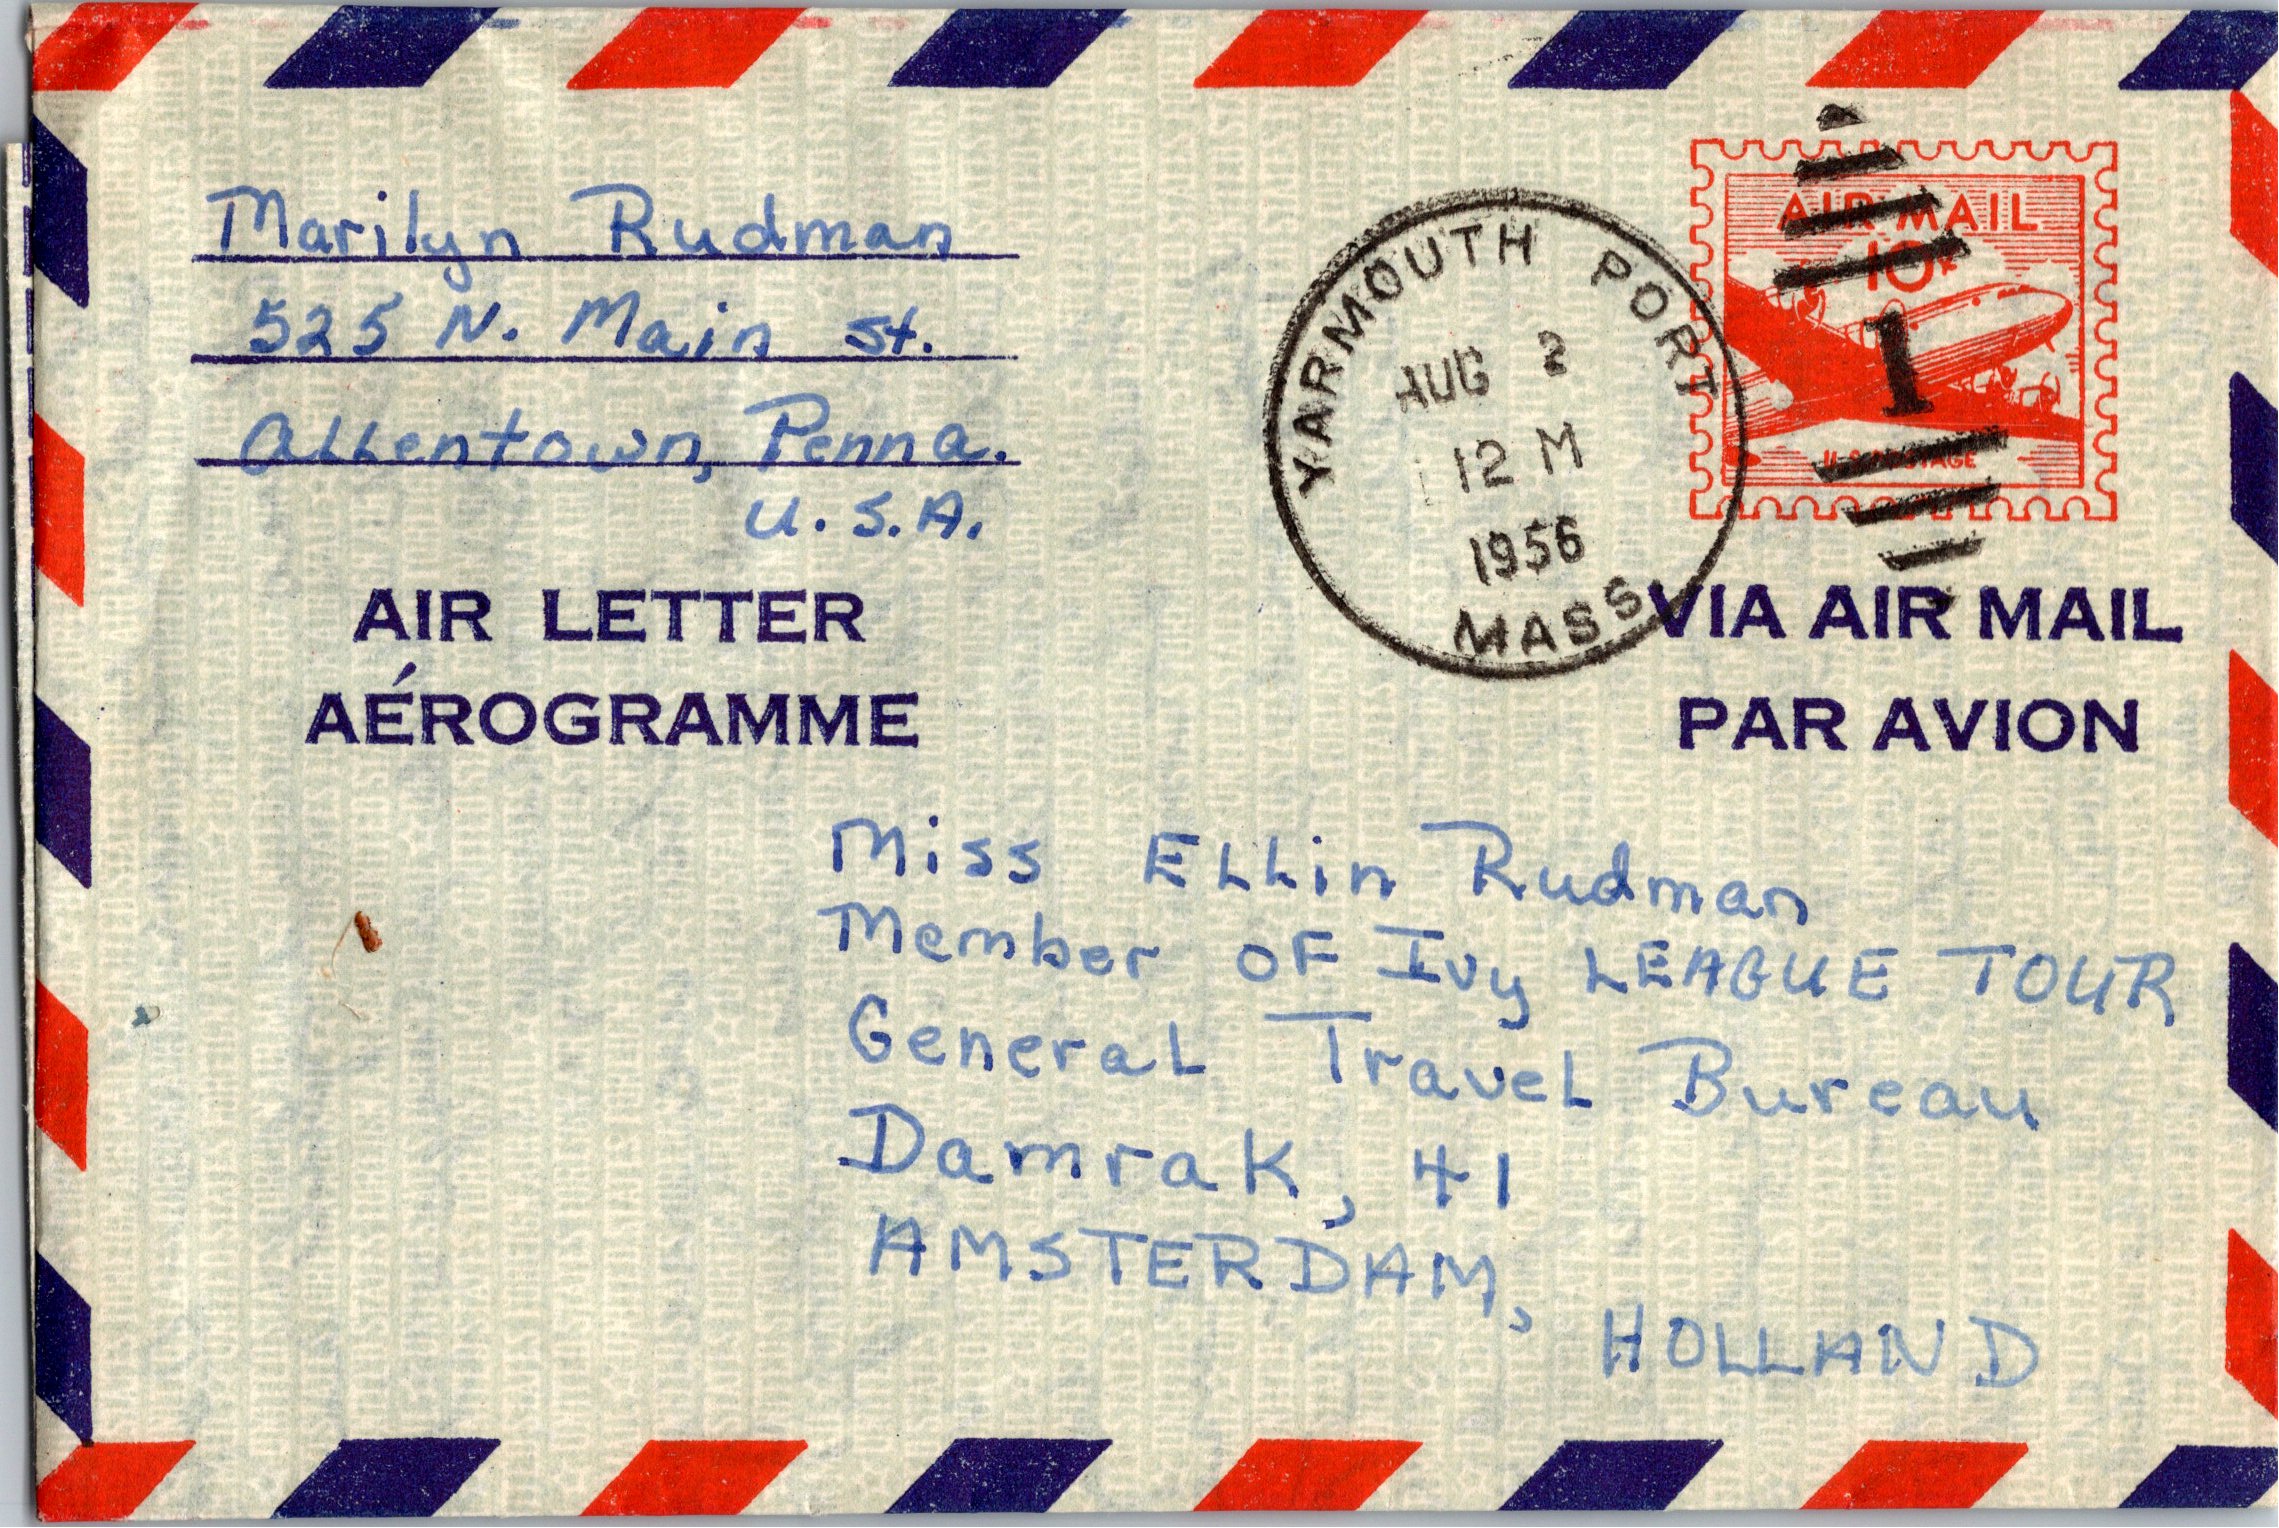 Marilyn Rudman
525 N. Main St.
Allentown, Penna.
U.S.A.
AIR LETTER
AÉROGRAMME
YARMOUTH PORT
AUG 2
12 M
1956
MASS
AIR MAIL
10¢
1
U.S. POSTAGE
VIA AIR MAIL
PAR AVION
Miss ELLin Rudman
Member OF Ivy LEAGUE TOUR
General Travel Bureau
Damrak, 41
AMSTERDAM,
HOLLAND